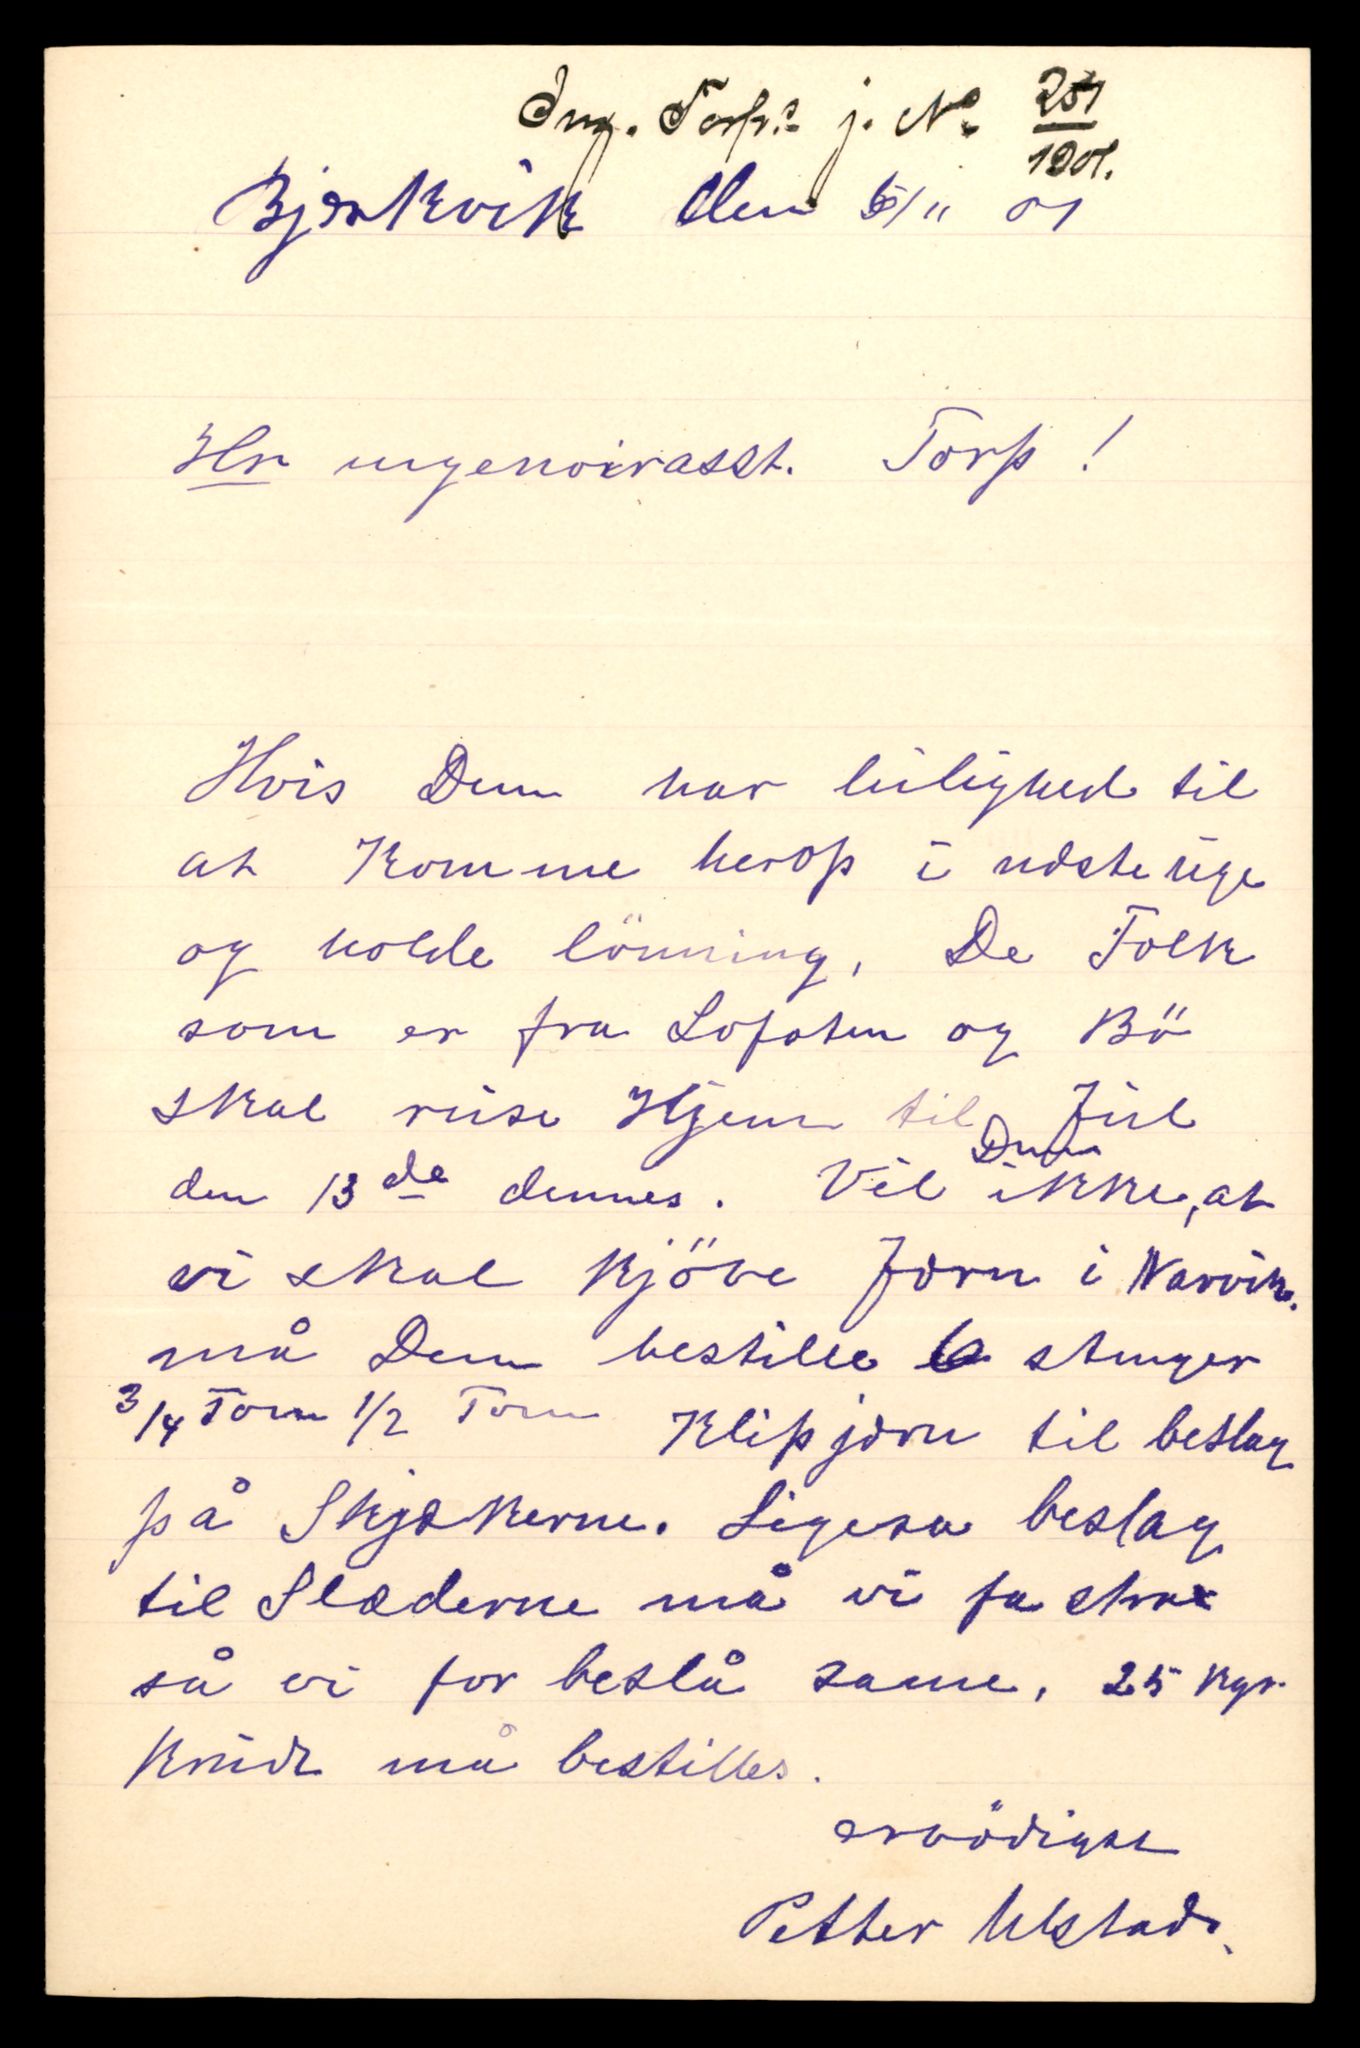 Ing. Torps j. No 251/1901.
Bjerkvik den 5/11 01
Hr ingenoirasst. Torp!
Hvis Dem har leilighed til
at komme herop i næste uge
og holde lönning, De Folk
som er fra Lofoten og Bö
skal reise Hjem til Jul
den 13de dennes. Vil Dem ikke, at
vi skal kjöbe Jærn i Narvik.
må Dem bestille 6 stenger
3/4 Tom 1/2 Tom Klipjærn til beslag
på Skjækerne. Ligesa beslag
til Slæderne må vi fa strax
så vi for beslå same, 25 Kgr.
Krudt må bestilles.
ærbödigst
Petter Ulstad.